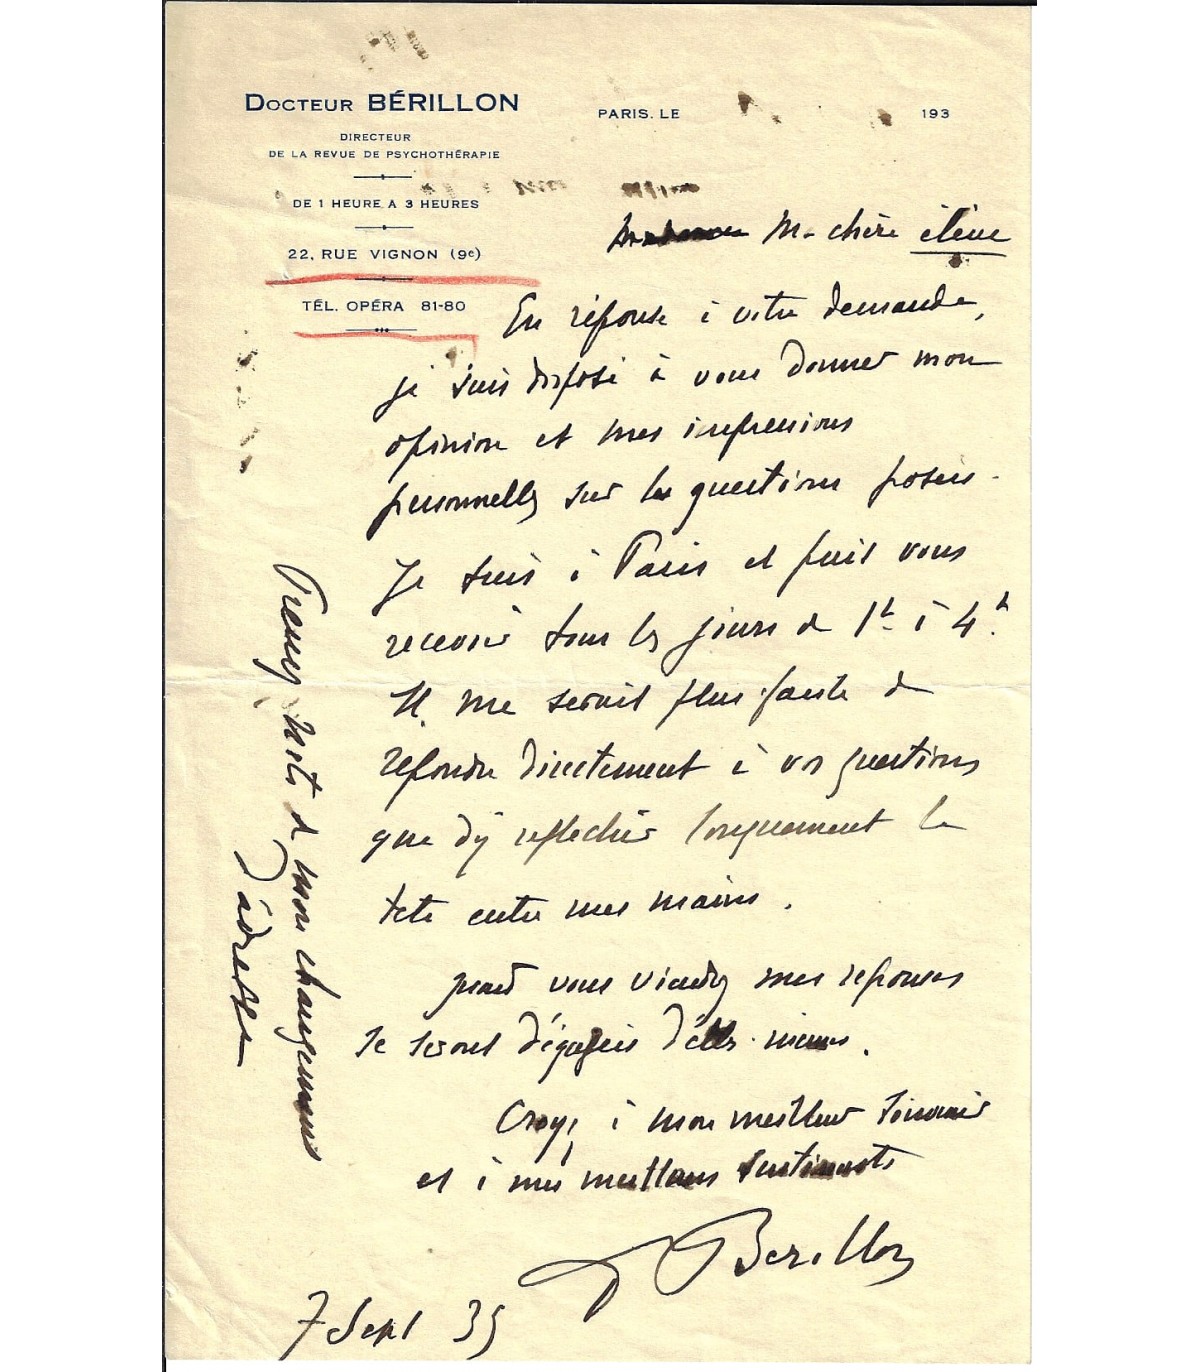 DOCTEUR BÉRILLON
DIRECTEUR
DE LA REVUE DE PSYCHOTHÉRAPIE
DE 1 HEURE A 3 HEURES
22, RUE VIGNON (9e)
TÉL. OPÉRA 81-80
PARIS. LE 193
Ma chère élève
En réponse à votre demande,
je suis disposé à vous donner mon
opinion et mes impressions
personnelles sur les questions posées.
Je suis à Paris et puis vous
recevoir tous les jours de 1h à 4h.
Il me serait plus facile de
repondre directement à vos questions
que d'y reflechir longuement la
tete entre mes mains.
quand vous viendrez mes reponses
se seront dégagées d'elles-mêmes.
Croyez à mon meilleur souvenir
et à mes meilleurs sentiments
Berillon
7 Sept 35
Prenez note de mon changement
d'adresse